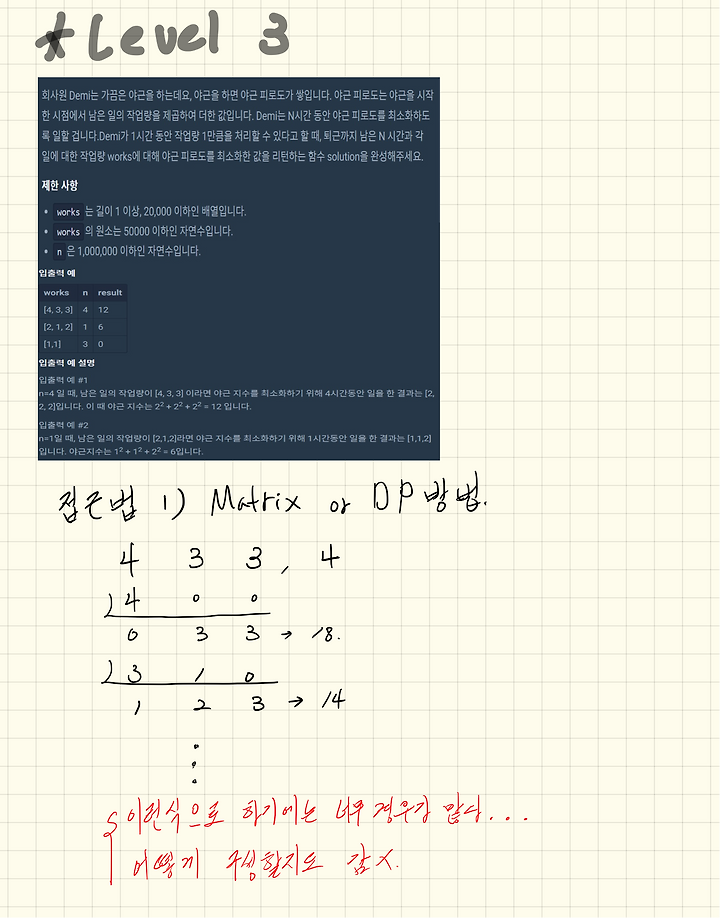 *Level 3
회사원 Demi는 가끔은 야근을 하는데요, 야근을 하면 야근 피로도가 쌓입니다. 야근 피로도는 야근을 시작
한 시점에서 남은 일의 작업량을 제곱하여 더한 값입니다. Demi는 N시간 동안 야근 피로도를 최소화하도
록 일할 겁니다.Demi가 1시간 동안 작업량 1만큼을 처리할 수 있다고 할 때, 퇴근까지 남은 N 시간과 각
일에 대한 작업량 works에 대해 야근 피로도를 최소화한 값을 리턴하는 함수 solution을 완성해주세요.
제한 사항
• works 는 길이 1 이상, 20,000 이하인 배열입니다.
• works 의 원소는 50000 이하인 자연수입니다.
• n 은 1,000,000 이하인 자연수입니다.
입출력 예
works n result
[4, 3, 3] 4 12
[2, 1, 2] 1 6
[1,1] 3 0
입출력 예 설명
입출력 예 #1
n=4 일 때, 남은 일의 작업량이 [4, 3, 3] 이라면 야근 지수를 최소화하기 위해 4시간동안 일을 한 결과는 [2,
2, 2]입니다. 이 때 야근 지수는 2² + 2² + 2² = 12 입니다.
입출력 예 #2
n=1일 때, 남은 일의 작업량이 [2,1,2]라면 야근 지수를 최소화하기 위해 1시간동안 일을 한 결과는 [1,1,2]
입니다. 야근지수는 1² + 1² + 2² = 6입니다.
접근법 1) Matrix or DP 방법.
4 3 3 , 4
) 4 0 0
0 3 3 → 18.
) 3 1 0
1 2 3 → 14
이런식으로 하기에는 너무 경우가 많다...
어떻게 구성할지도 감 X.